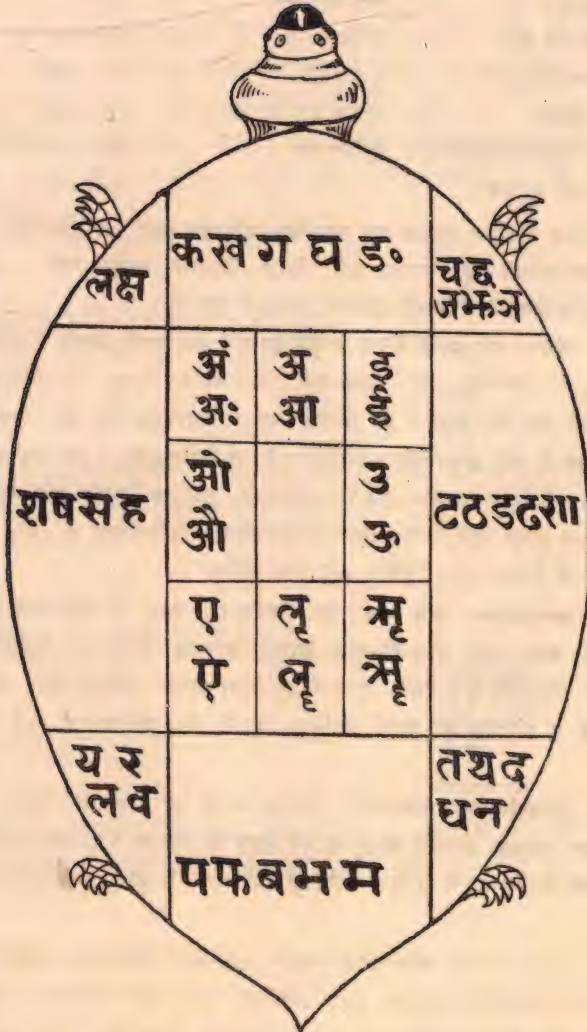 क ख ग घ ङ
लक्ष
च छ
ज झ ञ
अं
अः
अ
आ
इ
ई
शषसह
ओ
औ
उ
ऊ
टठडढण
ए
ऐ
लृ
लॄ
ऋ
ॠ
य र
ल व
तथद
धन
पफबभम